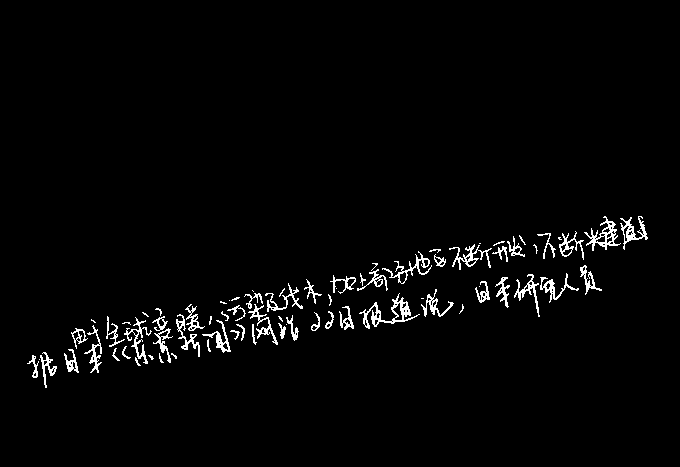 由于全球变暖、污染及伐木,加上部分地区不断开发,不断兴建道
据日本《东京新闻》网站22日报道说,日本研究人员